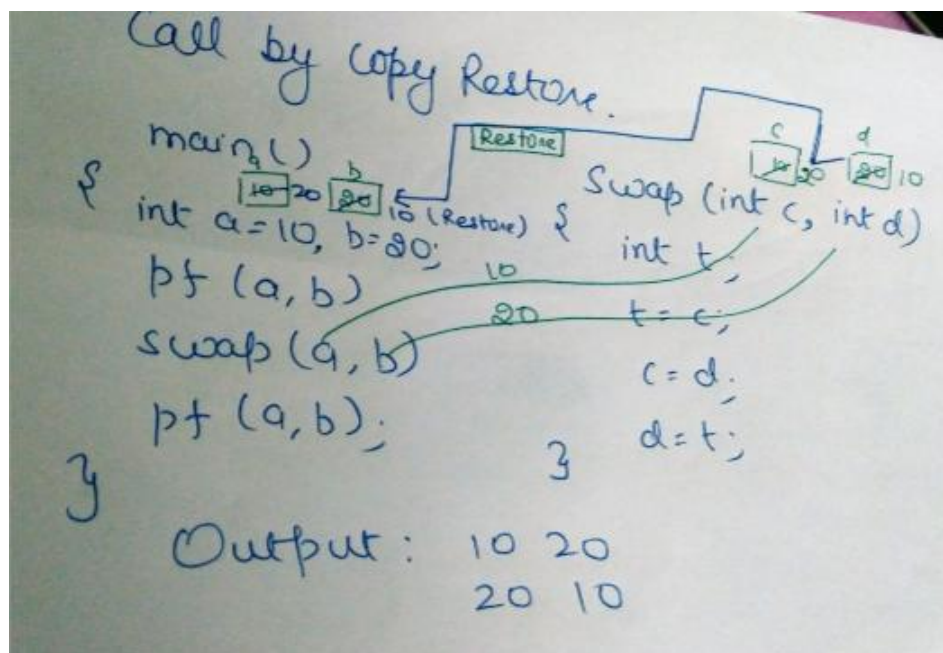 Call by Copy Restore.
Restore
main()
a b
10 20 20 10 (Restore)
{
int a=10, b=20;
pf (a,b)
swap (a,b)
pf (a,b);
}
c d
10 20 20 10
Swap (int c, int d)
{
int t;
t=c;
c=d;
d=t;
}
10
20
Output: 10 20
20 10